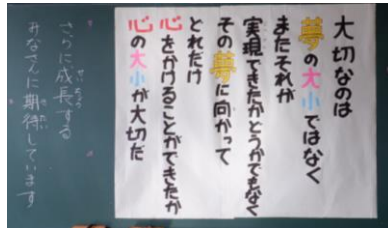 大切なのは
夢の大小ではなく
またそれが
実現できたかどうかでもなく
その夢に向かって
どれだけ
心をかけることができたか
心の大小が大切だ
さらに成長する
せいちょう
みなさんに期待しています
きたい